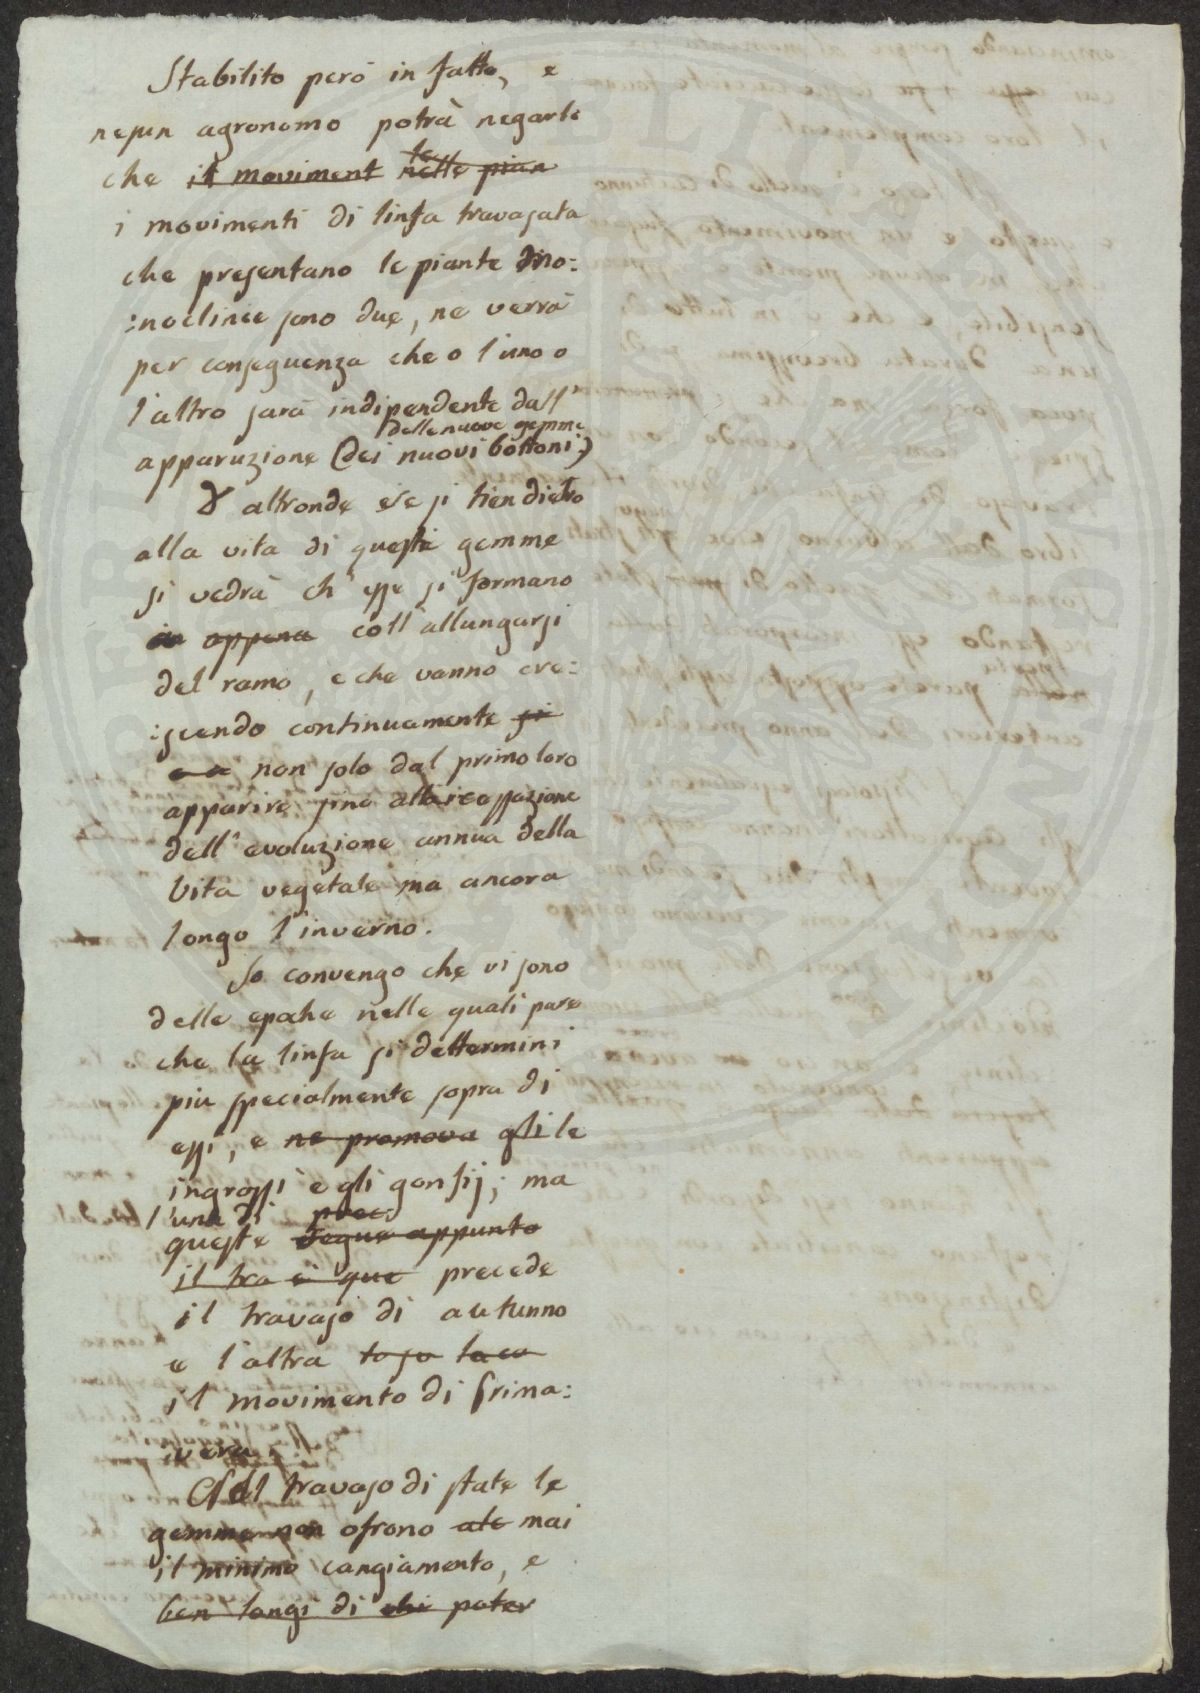 Stabilito però in fatto, e
nesun agronomo potrà negarlo
che il moviment nelle le pian
i movimenti di linfa travasata
che presentano le piante dmo:
:noclinie sono due, ne verrà
per conseguenza che o l'uno o
l'altro sarà indipendente dall
delle nuove gemme
apparuzione (dei nuovi bottoni.)
D altronde se si tien dietro
alla vita di queste gemme
si vedrà ch'esse si formano
appena coll'allungarsi
del ramo, e che vanno cre:
:scendo continuamente si
non solo dal primo loro
apparire sino alla cessazione
dell'evoluzione annua della
vita vegetale ma ancora
longo l'inverno.
Io convengo che vi sono
delle epoche nelle quali pare
che la linfa si dettermini
più specialmente sopra di
essi, e ne promova gli le
ingrossi e gli gonfij; ma
l'una di prec:
queste segue appunto
il tra è que precede
il travaso di autunno
e l'altra
il movimento di Prima:
:vera.
Nel travaso di state le
gemme non ofrono mai
il minimo cangiamento, e
ben longi di chi poter